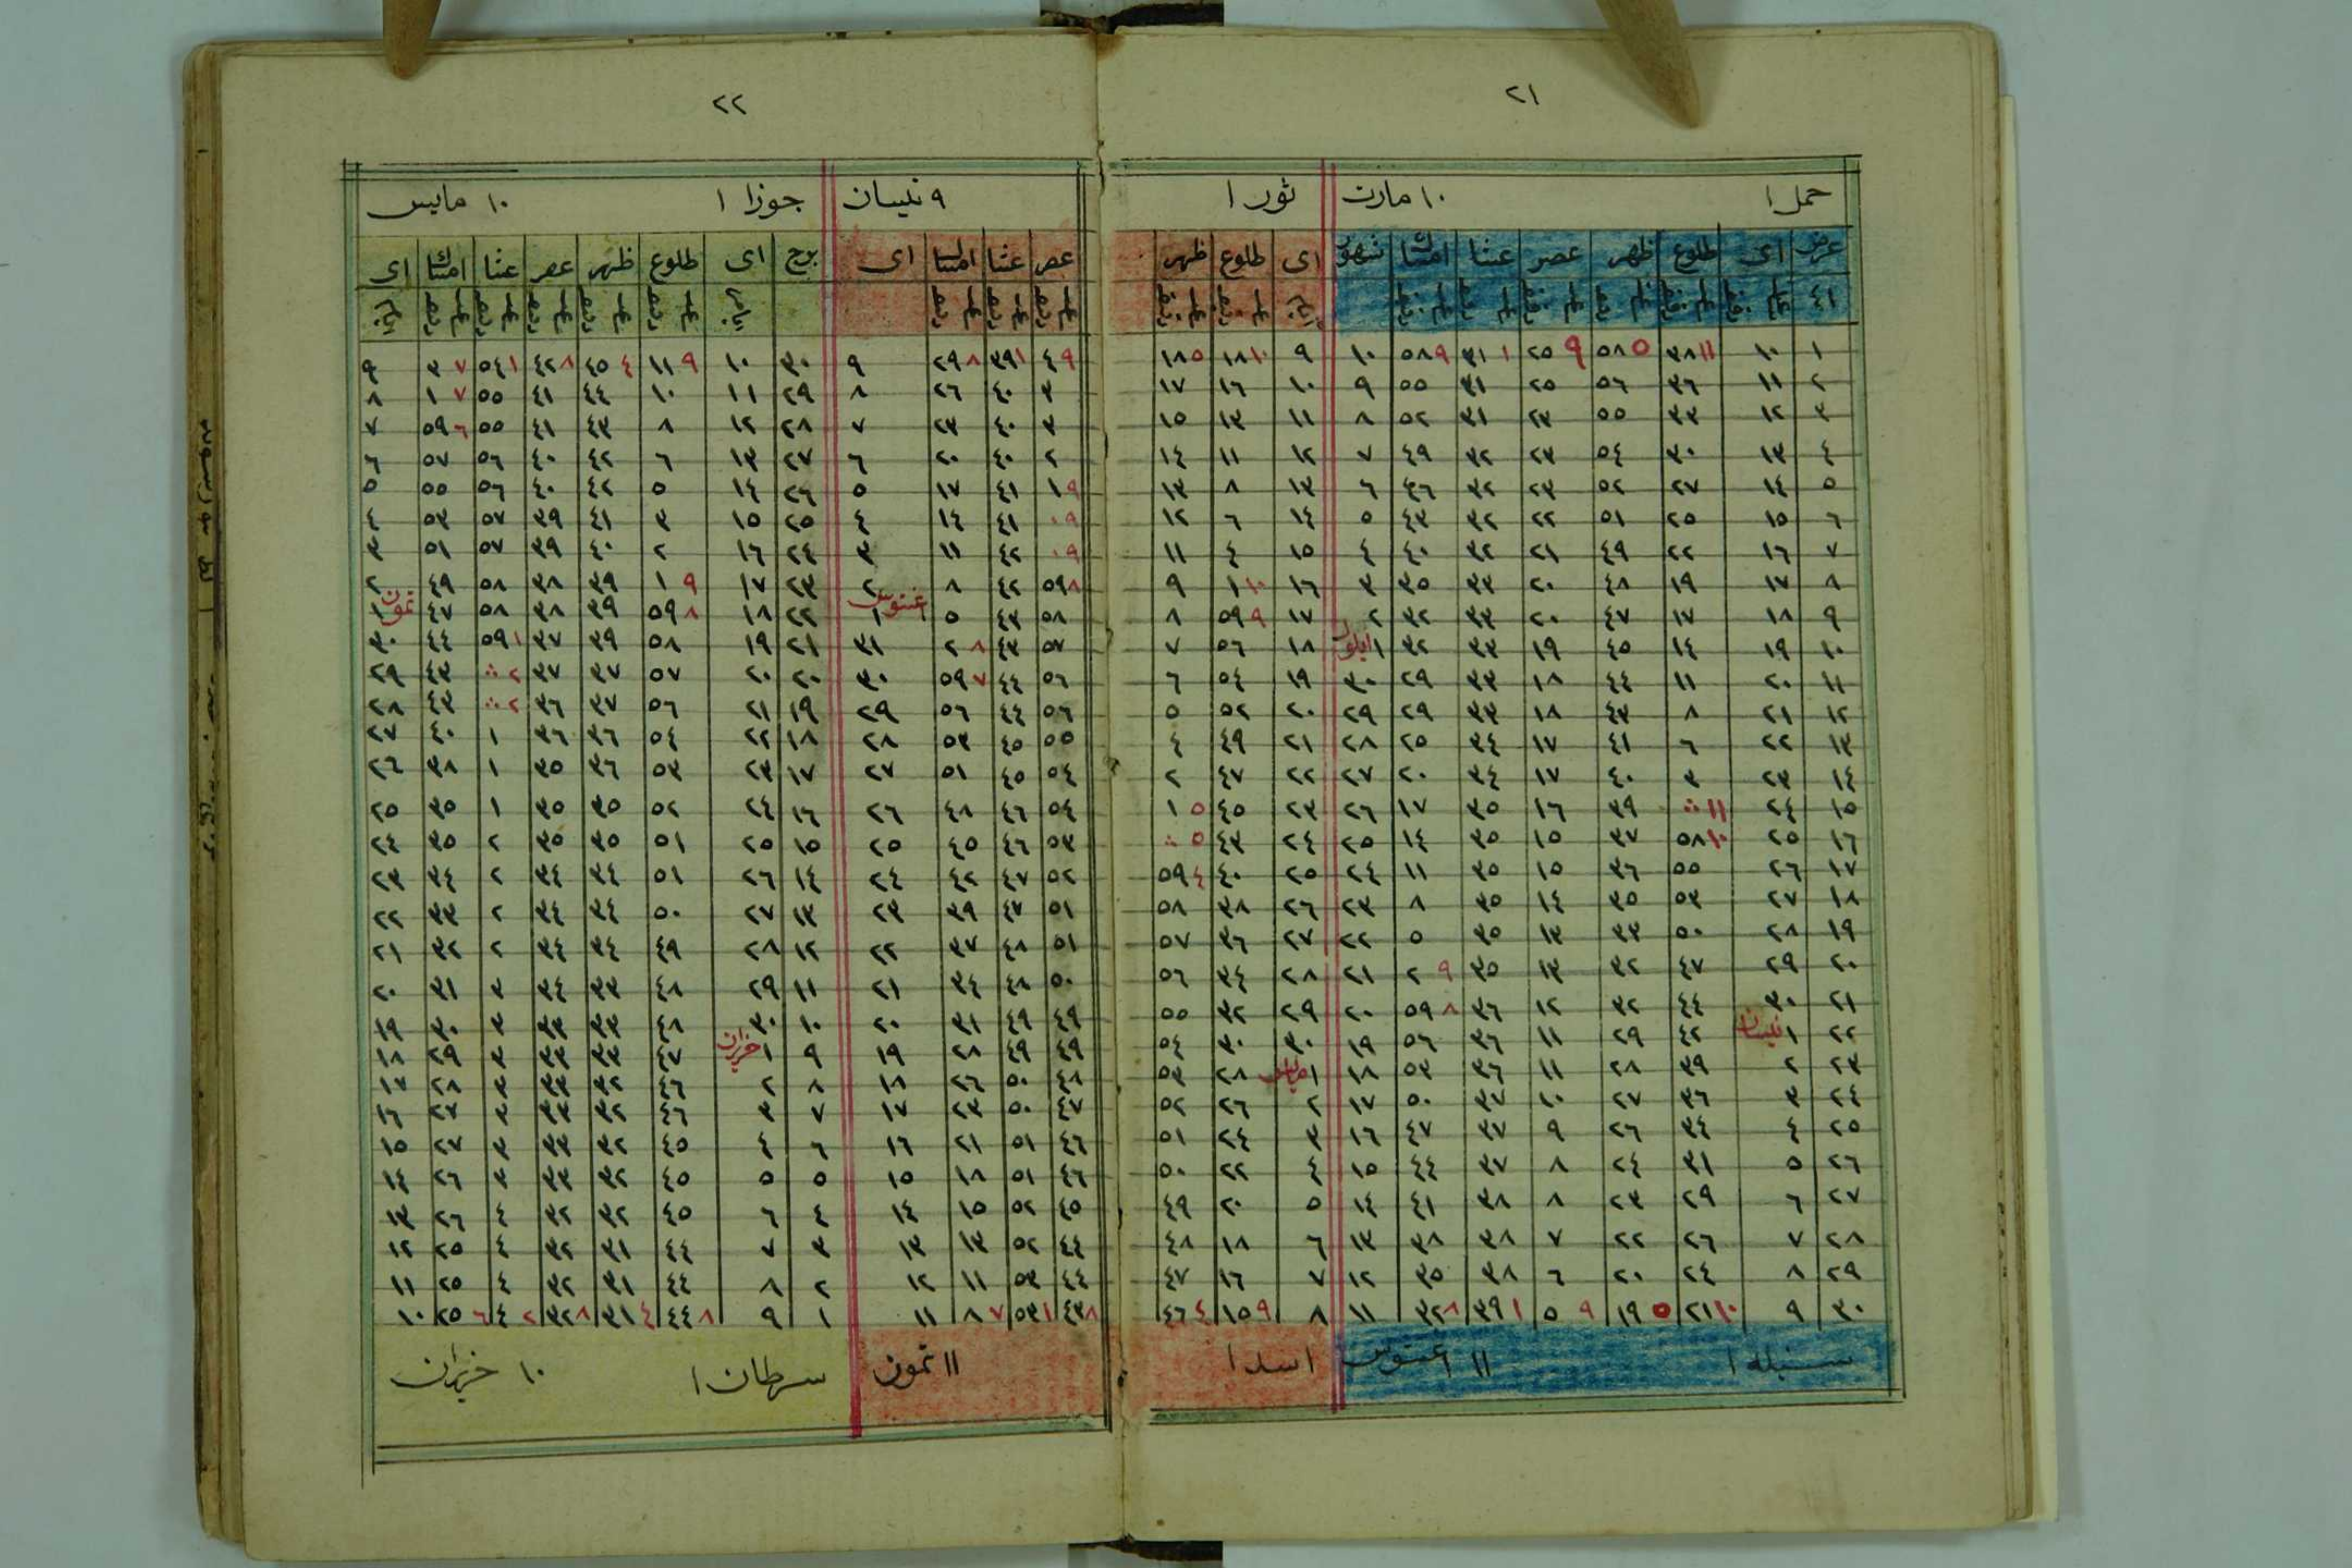 ٢١
حمل ١ ١٠ مارت ثور ١
عرض اى طلوع ظهر عصر عشا امساك شهور اى طلوع ظهر
٤١
١ ١٠ ٣٨ ١١ ٥٨ ٥ ٢٥ ٩ ٣١ ١ ٥٨ ٩ ١٠ ٩ ١٨ ١٠ ١٨ ٥
٢ ١١ ٣٦ ٥٦ ٢٥ ٣١ ٥٥ ٩ ١٠ ١٦ ١٧
٣ ١٢ ٣٣ ٥٥ ٢٣ ٣١ ٥٢ ٨ ١١ ١٣ ١٥
٤ ١٣ ٣٠ ٥٤ ٢٣ ٣٢ ٤٩ ٧ ١٢ ١١ ١٤
٥ ١٤ ٢٧ ٥٢ ٢٣ ٣٢ ٤٦ ٦ ١٣ ٨ ١٣
٦ ١٥ ٢٥ ٥١ ٢٢ ٣٢ ٤٣ ٥ ١٤ ٦ ١٢
٧ ١٦ ٢٢ ٤٩ ٢١ ٣٢ ٤٠ ٤ ١٥ ٤ ١١
٨ ١٧ ١٩ ٤٨ ٢٠ ٣٣ ٣٥ ٣ ١٦ ١ ١٠ ٩
٩ ١٨ ١٧ ٤٧ ٢٠ ٣٣ ٣٢ ٢ ١٧ ٥٩ ٩ ٨
١٠ ١٩ ١٤ ٤٥ ١٩ ٣٣ ٣٢ ١ ايلول ١٨ ٥٦ ٧
١١ ٢٠ ١١ ٤٤ ١٨ ٣٣ ٢٩ ٣٠ ١٩ ٥٤ ٦
١٢ ٢١ ٨ ٤٣ ١٨ ٣٣ ٢٩ ٢٩ ٢٠ ٥٢ ٥
١٣ ٢٢ ٦ ٤١ ١٧ ٣٤ ٢٥ ٢٨ ٢١ ٤٩ ٤
١٤ ٢٣ ٣ ٤٠ ١٧ ٣٤ ٢٠ ٢٧ ٢٢ ٤٧ ٢
١٥ ٢٤ ١١ ٣٩ ١٦ ٣٥ ١٧ ٢٦ ٢٣ ٤٥ ١ ٥
١٦ ٢٥ ٥٨ ١٠ ٣٧ ١٥ ٣٥ ١٤ ٢٥ ٢٤ ٤٣ ٥
١٧ ٢٦ ٥٥ ٣٦ ١٥ ٣٥ ١١ ٢٤ ٢٥ ٤٠ ٥٩ ٤
١٨ ٢٧ ٥٣ ٣٥ ١٤ ٣٥ ٨ ٢٣ ٢٦ ٣٨ ٥٨
١٩ ٢٨ ٥٠ ٣٣ ١٣ ٣٥ ٥ ٢٢ ٢٧ ٣٦ ٥٧
٢٠ ٢٩ ٤٧ ٣٢ ١٣ ٣٥ ٢ ٩ ٢١ ٢٨ ٣٤ ٥٦
٢١ ٣٠ ٤٤ ٣٢ ١٢ ٣٦ ٥٩ ٨ ٢٠ ٢٩ ٣٢ ٥٥
٢٢ ١ نيسان ٤٢ ٢٩ ١١ ٣٦ ٥٦ ١٩ ٣٠ ٣٠ ٥٤
٢٣ ٢ ٣٩ ٢٨ ١١ ٣٦ ٥٣ ١٨ ١ مايس ٢٨ ٥٣
٢٤ ٣ ٣٦ ٢٧ ١٠ ٣٧ ٥٠ ١٧ ٢ ٢٦ ٥٢
٢٥ ٤ ٣٤ ٢٦ ٩ ٣٧ ٤٧ ١٦ ٣ ٢٤ ٥١
٢٦ ٥ ٣١ ٢٤ ٨ ٣٧ ٤٤ ١٥ ٤ ٢٢ ٥٠
٢٧ ٦ ٢٩ ٢٣ ٨ ٣٨ ٤١ ١٤ ٥ ٢٠ ٤٩
٢٨ ٧ ٢٦ ٢٢ ٧ ٣٨ ٣٨ ١٣ ٦ ١٨ ٤٨
٢٩ ٨ ٢٤ ٢٠ ٦ ٣٨ ٣٥ ١٢ ٧ ١٦ ٤٧
٣٠ ٩ ٢١ ١٠ ١٩ ٥ ٥ ٩ ٣٩ ١ ٣٢ ٨ ١١ ٨ ١٥ ٩ ٤٦ ٤
سنبله ١ ١١ اغستوس اسد ١
٢٢
٩ نيسان جوزا ١ ١٠ مايس
عصر عشا امساك اى برج اى طلوع ظهر عصر عشا امساك اى
٤ ٩ ٣٩ ١ ٢٩ ٨ ٩ ٣٠ ١٠ ١١ ٩ ٤٥ ٤ ٤٢ ٨ ٥٤ ١ ٣ ٧ ٩
٣ ٤٠ ٢٦ ٨ ٢٩ ١١ ١٠ ٤٤ ٤١ ٥٥ ١ ٧ ٨
٣ ٤٠ ٢٣ ٧ ٢٨ ١٢ ٨ ٤٣ ٤١ ٥٥ ٥٩ ٦ ٧
٢ ٤٠ ٢٠ ٦ ٢٧ ١٣ ٦ ٤٢ ٤٠ ٥٦ ٥٧ ٦
١ ٩ ٤١ ١٧ ٥ ٢٦ ١٤ ٥ ٤٢ ٤٠ ٥٦ ٥٥ ٥
٠ ٩ ٤١ ١٤ ٤ ٢٥ ١٥ ٣ ٤١ ٣٩ ٥٧ ٥٣ ٤
٠ ٩ ٤٢ ١١ ٣ ٢٤ ١٦ ٢ ٤٠ ٣٩ ٥٧ ٥١ ٣
٥٩ ٨ ٤٢ ٨ ٢ ٢٣ ١٧ ١ ٩ ٣٩ ٣٨ ٥٨ ٤٩ ٢
٥٨ ٤٣ ٥ ١ اغستوس ٢٢ ١٨ ٥٩ ٨ ٣٩ ٣٨ ٥٨ ٤٧ ١ تموز
٥٧ ٤٣ ٢ ٨ ٣١ ٢١ ١٩ ٥٨ ٣٩ ٣٧ ٥٩ ١ ٤٤ ٣٠
٥٦ ٤٤ ٥٩ ٧ ٣٠ ٢٠ ٢٠ ٥٧ ٣٧ ٣٧ ٢ ٤٣ ٢٩
٥٦ ٤٤ ٥٦ ٢٩ ١٩ ٢١ ٥٦ ٣٧ ٣٦ ٢ ٤٣ ٢٨
٥٥ ٤٥ ٥٣ ٢٨ ١٨ ٢٢ ٥٤ ٣٦ ٣٦ ١ ٤٠ ٢٧
٥٤ ٤٥ ٥١ ٢٧ ١٧ ٢٣ ٥٣ ٣٦ ٣٥ ١ ٣٨ ٢٦
٥٤ ٤٦ ٤٨ ٢٦ ١٦ ٢٤ ٥٢ ٣٥ ٣٥ ١ ٣٥ ٢٥
٥٣ ٤٦ ٤٥ ٢٥ ١٥ ٢٥ ٥١ ٣٥ ٣٥ ٢ ٣٥ ٢٤
٥٢ ٤٧ ٤٢ ٢٤ ١٤ ٢٦ ٥١ ٣٤ ٣٤ ٢ ٣٤ ٢٣
٥١ ٤٧ ٣٩ ٢٣ ١٣ ٢٧ ٥٠ ٣٤ ٣٤ ٢ ٣٣ ٢٢
٥١ ٤٨ ٣٧ ٢٢ ١٢ ٢٨ ٤٩ ٣٤ ٣٤ ٢ ٣٢ ٢١
٥٠ ٤٨ ٣٤ ٢١ ١١ ٢٩ ٤٨ ٣٣ ٣٤ ٣ ٣١ ٢٠
٤٩ ٤٩ ٣١ ٢٠ ١٠ ٣٠ ٤٨ ٣٣ ٣٣ ٣ ٣٠ ١٩
٤٩ ٤٩ ٢٨ ١٩ ٩ ١ حزيران ٤٧ ٣٣ ٣٣ ٣ ٢٩ ١٨
٤٨ ٥٠ ٢٦ ١٨ ٨ ٢ ٤٦ ٣٢ ٣٣ ٣ ٢٨ ١٧
٤٧ ٥٠ ٢٣ ١٧ ٧ ٣ ٤٦ ٣٢ ٣٣ ٣ ٢٧ ١٦
٤٦ ٥١ ٢١ ١٦ ٦ ٤ ٤٥ ٣٢ ٣٣ ٣ ٢٧ ١٥
٤٦ ٥١ ١٨ ١٥ ٥ ٥ ٤٥ ٣٢ ٣٣ ٣ ٢٦ ١٤
٤٥ ٥٢ ١٥ ١٤ ٤ ٦ ٤٥ ٣٢ ٣٢ ٤ ٢٦ ١٣
٤٤ ٥٢ ١٣ ١٣ ٣ ٧ ٤٤ ٣١ ٣٢ ٤ ٢٥ ١٢
٤٤ ٥٣ ١١ ١٢ ٢ ٨ ٤٤ ٣١ ٣٢ ٤ ٢٥ ١١
٤٣ ٨ ٥٣ ١ ٨ ٧ ١١ ١ ٩ ٤٤ ٨ ٣١ ٤ ٣٢ ٨ ٤ ٢ ٢٥ ٦ ١٠
١١ تموز سرطان ١ ١٠ حزيران